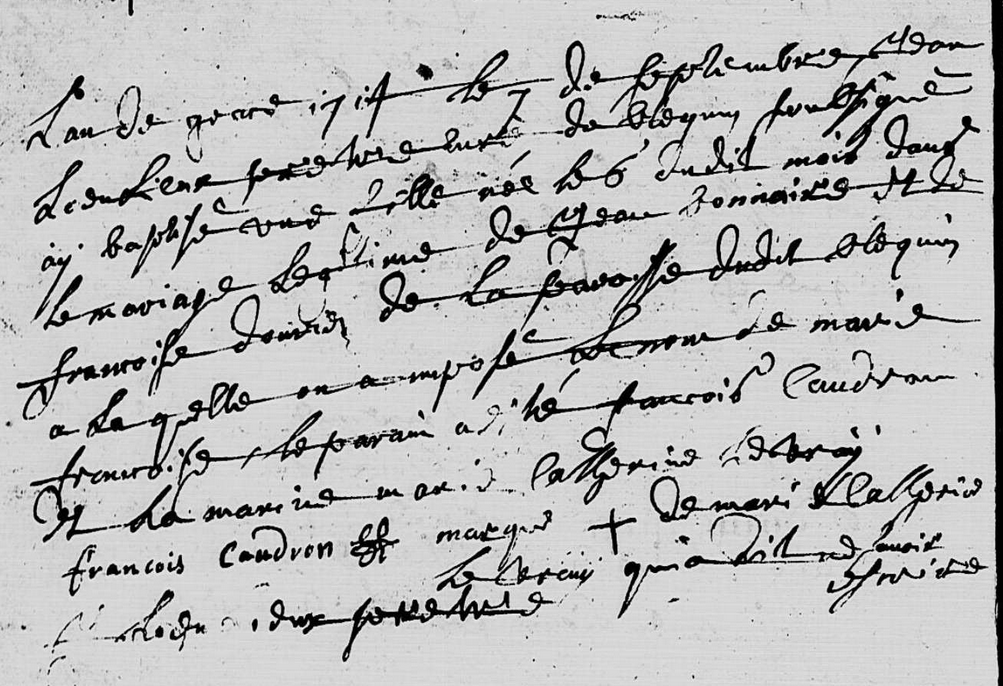 L'an de grace 1714 le 7 de septembre Jean
prestre curé de blequin soubsigné
ay baptisé une fille née le 6 dudit mois dans
le mariage legitime de Jean bonnaire et de
francoise de la paroisse dudit blequin
a la quelle on a imposé le nom de marie
francoise, le parain a été francois Caudron
et la marine marie Catherine levray
francois Caudron marque + de marie Catherine
le vray qui a dit ne scavoir
escrire
prestre